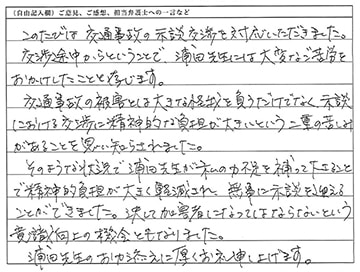 （自由記入欄）ご意見、ご感想、担当弁護士への一言など
このたびは交通事故の示談交渉を対応いただきました。
交渉途中からということで、浦田先生には大変なご苦労を
おかけしたことと存じます。
交通事故の被害とは大きな怪我を負うだけでなく、示談
における交渉に精神的な負担が大きいという二重の苦しみ
があることを思い知らされました。
そのような状況で浦田先生が私の力不足を補って下さること
で精神的負担が大きく軽減され、無事に示談を迎える
ことができました。決して加害者になってはならないという
意識向上の機会ともなりました。
浦田先生のお力添えに厚くお礼申し上げます。